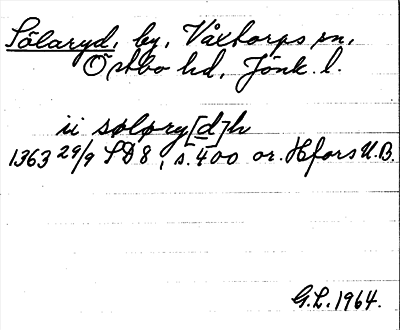 Sölaryd, by, Våxtorps sn,
Östbo hd, Jönk. l.
ii søløry[d]h
1363 29/9 SD 8, s. 400 or. Hfors U.B.
G.L. 1964.